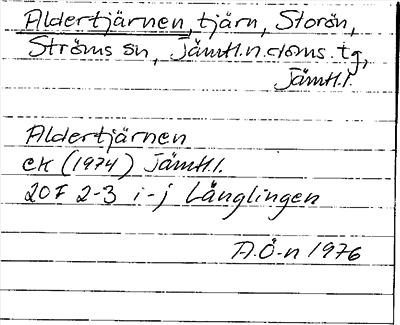 Aldertjärnen, tjärn, Storön,
Ströms sn, Jämtl.n.doms.tg,
Jämtl.l.
Aldertjärnen
ek (1974) Jämtl.l.
20F 2-3 i-j Långlingen
A.Ö-n 1976